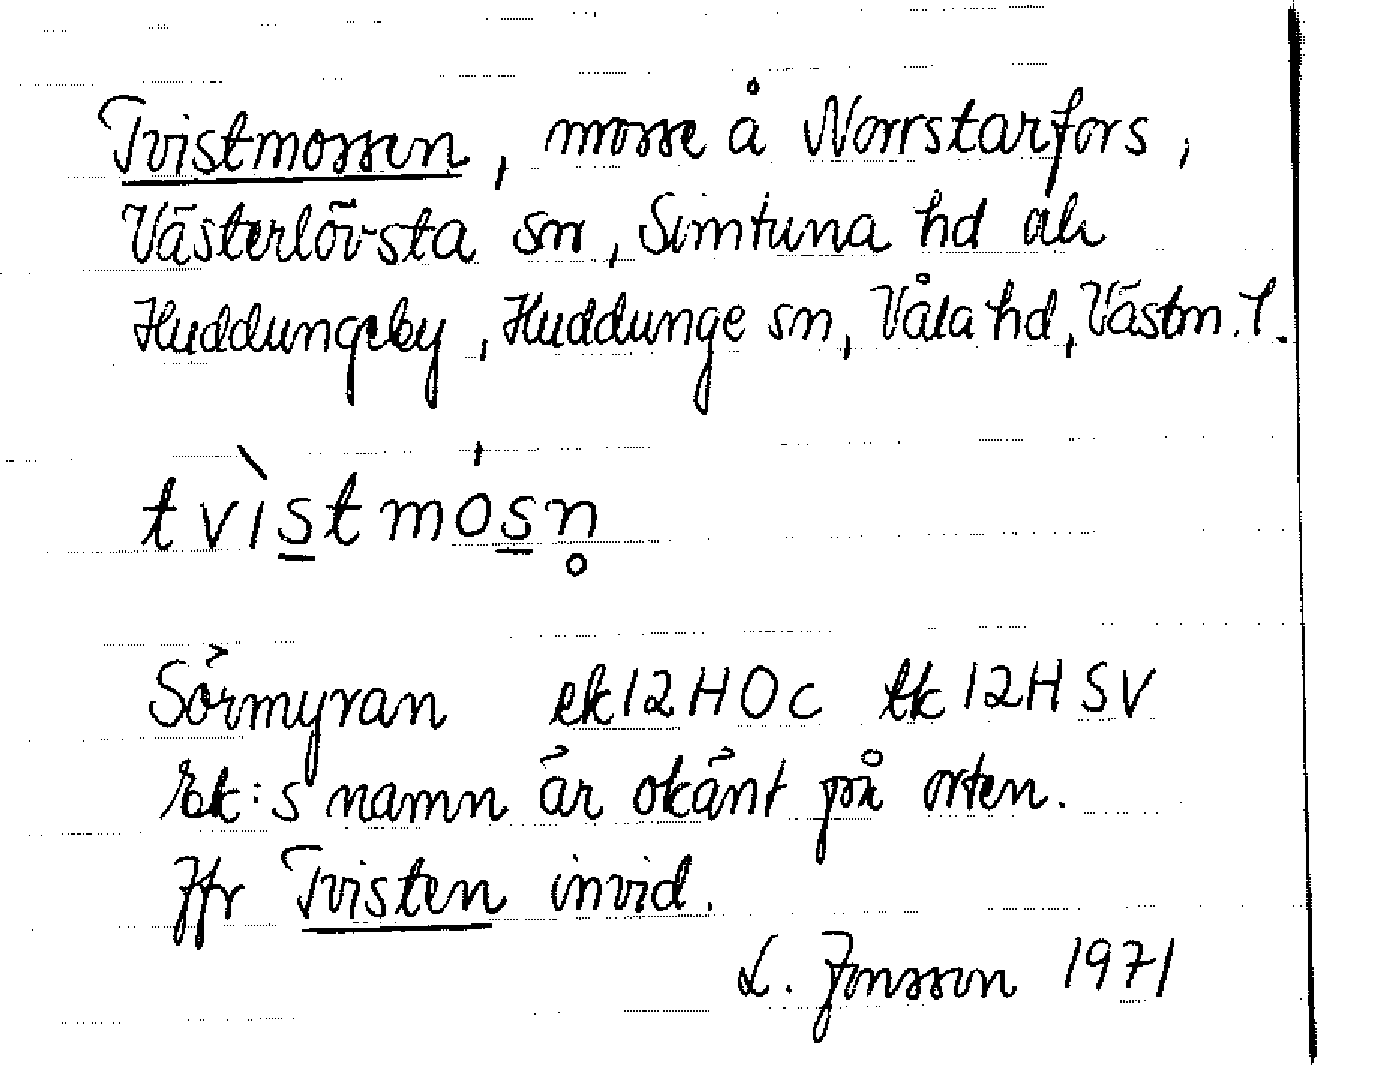 Tvistmossen, mosse å Norrstarfors,
Västerlövsta sn, Simtuna hd och
Huddungeby, Huddunge sn, Våla hd, Västm. l.
tvìs̲tmós̲n̥
Sörmyran ek 12H 0c tk 12H SV
Ek:s namn är okänt på orten.
Jfr Tvisten invid.
L. Jonsson 1971